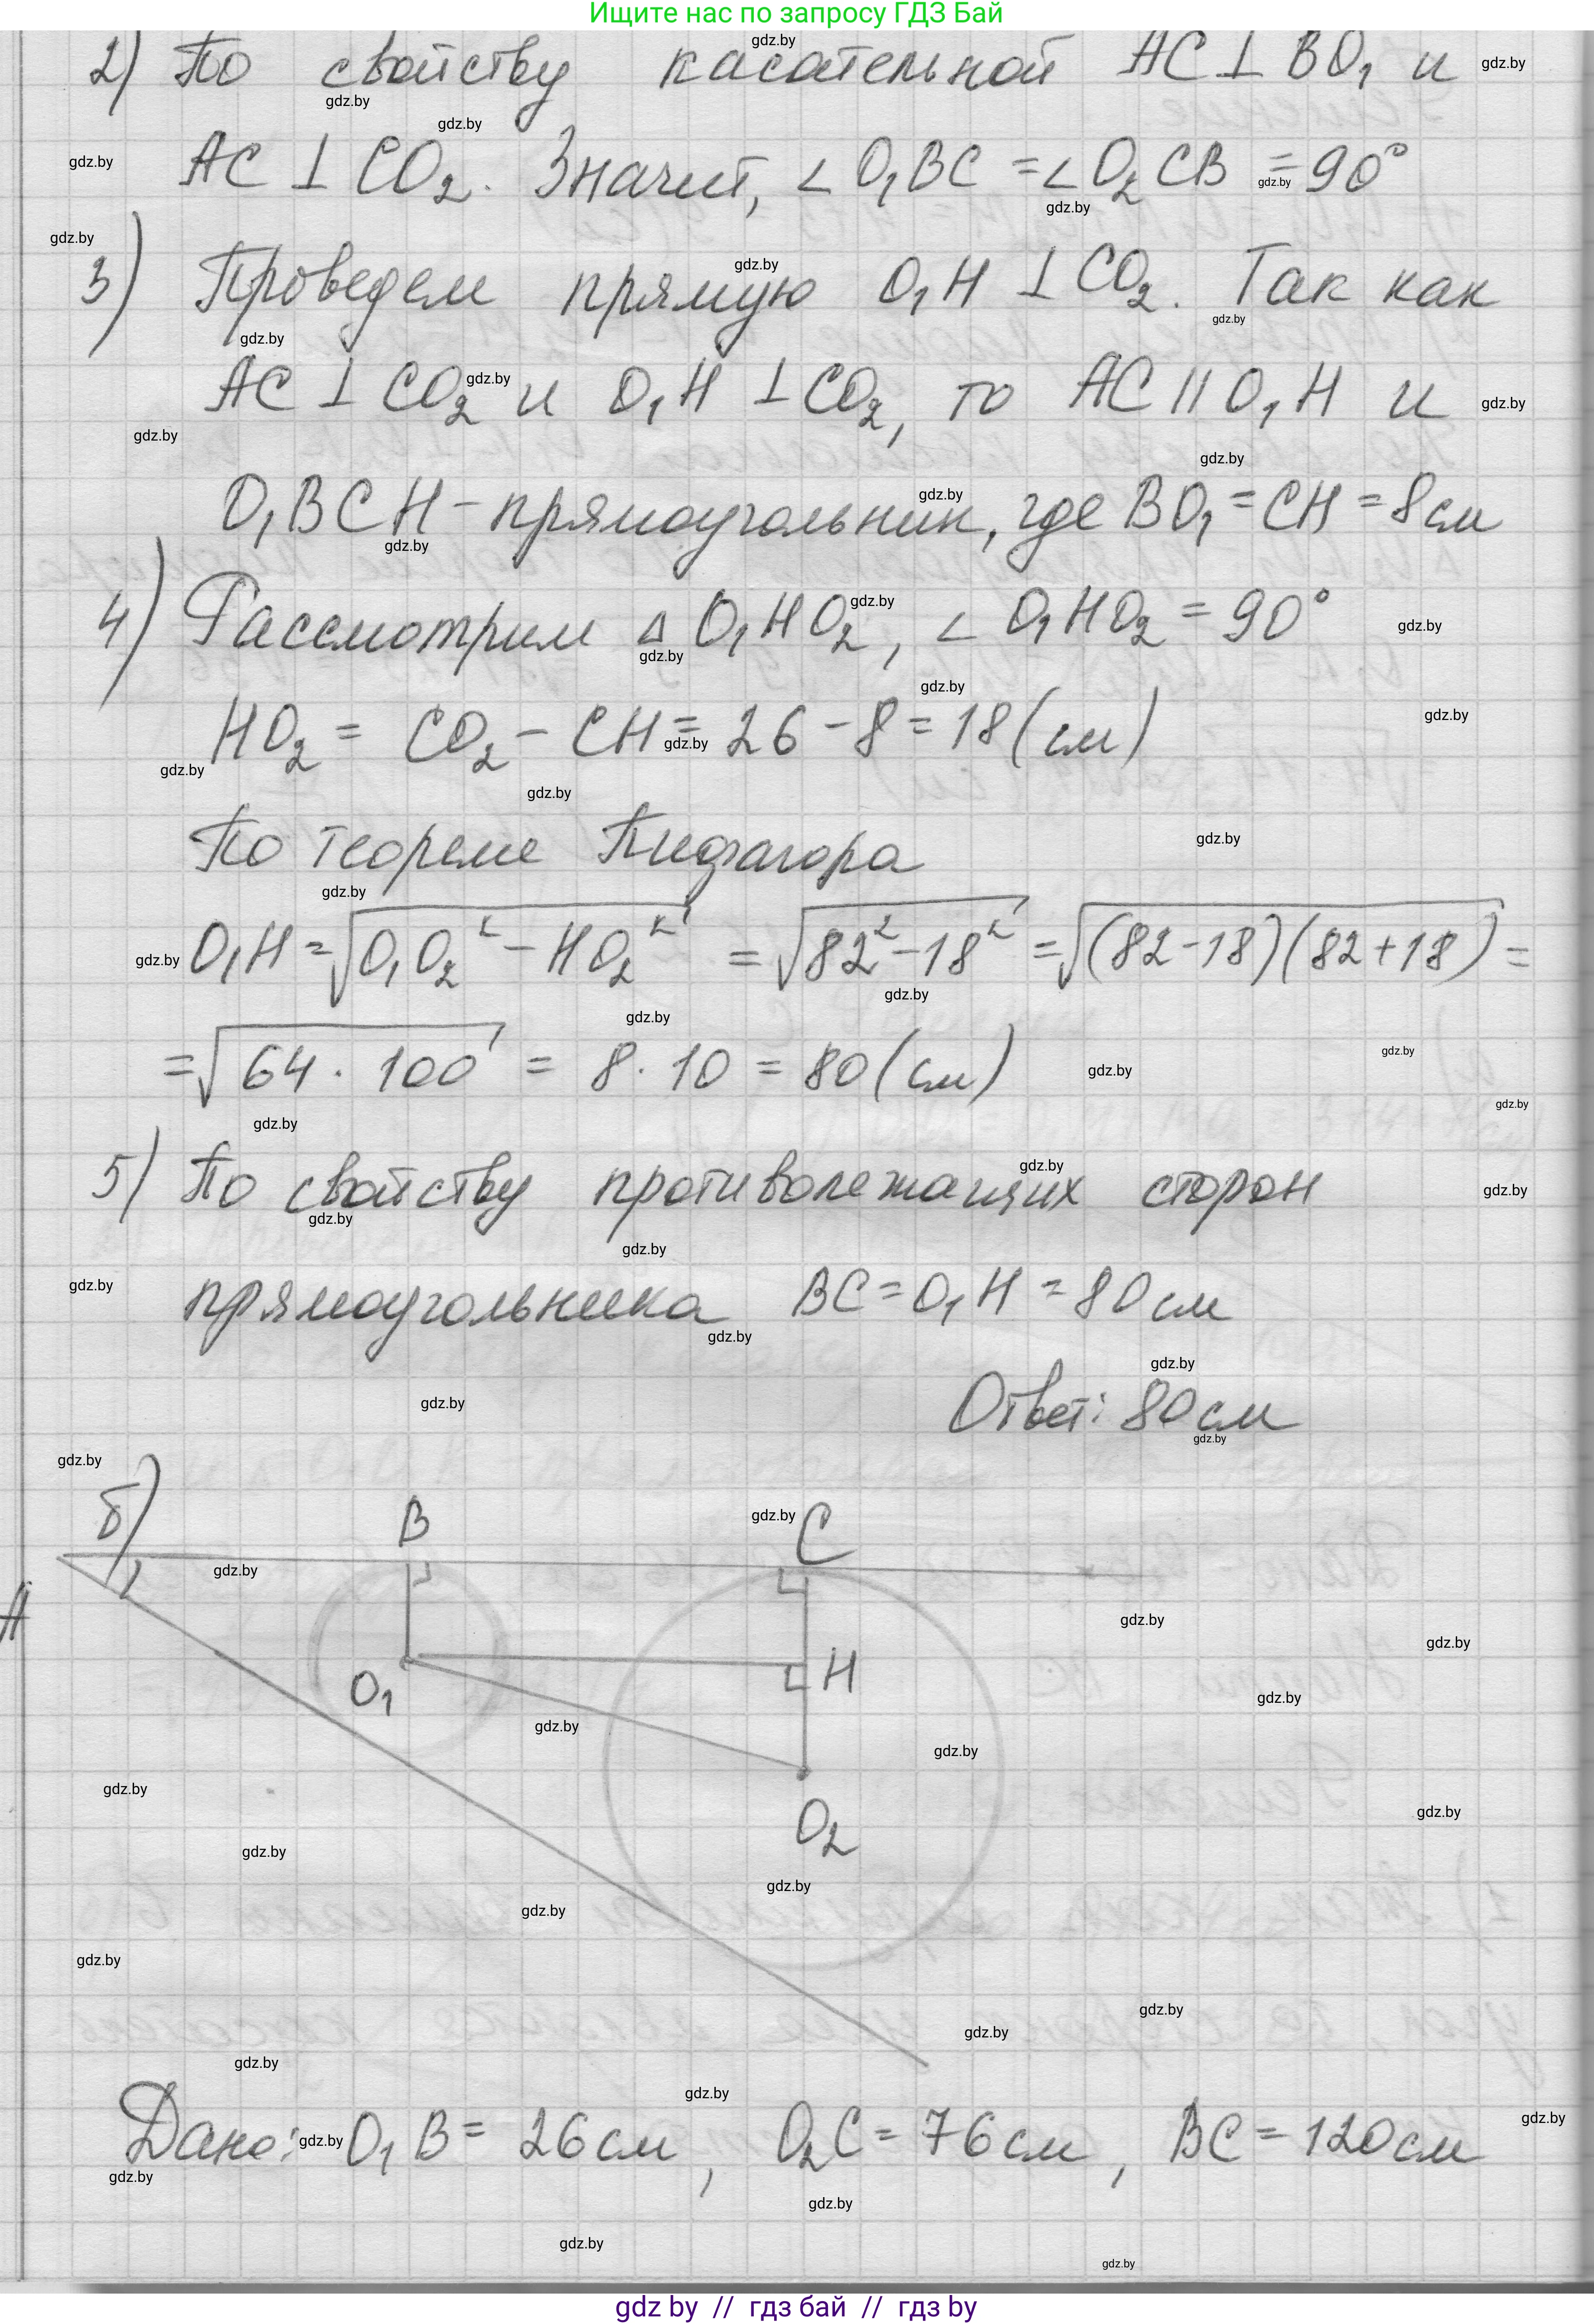 Ищите нас по запросу ГДЗ Бай
2) По свойству касательной AC ⊥ BO₁ и
AC ⊥ CO₂. Значит, ∠O₁BC = ∠O₂CB = 90°
3) Проведем прямую O₁H ⊥ CO₂. Так как
AC ⊥ CO₂ и O₁H ⊥ CO₂, то AC || O₁H и
O₁BCH - прямоугольник, где BO₁ = CH = 8 см
4) Рассмотрим Δ O₁HO₂, ∠O₁HO₂ = 90°
HO₂ = CO₂ - CH = 26 - 8 = 18 (см)
По теореме Пифагора
O₁H = √(O₁O₂² - HO₂²) = √(82² - 18²) = √((82-18)(82+18)) =
= √(64 · 100) = 8 · 10 = 80 (см)
5) По свойству противолежащих сторон
прямоугольника BC = O₁H = 80 см
Ответ: 80 см
б)
B C
A
O₁ H
O₂
Дано: O₁B = 26 см, O₂C = 76 см, BC = 120 см
gdz.by
gdz by // гдз бай // гдз by